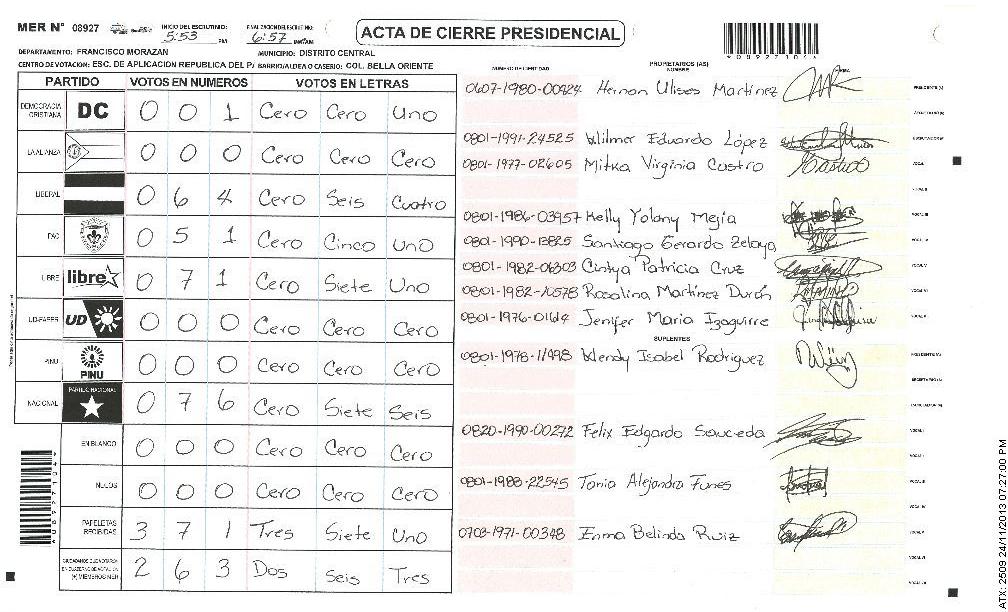 MER N° 08927
INICIO DEL ESCRUTINIO: 5:53 PM
FINALIZACION DEL ESCRUTINIO: 6:57
ACTA DE CIERRE PRESIDENCIAL
*08927104*
DEPARTAMENTO: FRANCISCO MORAZAN
MUNICIPIO: DISTRITO CENTRAL
CENTRO DE VOTACION: ESC. DE APLICACION REPUBLICA DEL P/ BARRIO/ALDEA O CASERIO: COL. BELLA ORIENTE
PARTIDO VOTOS EN NUMEROS VOTOS EN LETRAS
DEMOCRACIA CRISTIANA DC 0 0 1 Cero Cero Uno
LA ALIANZA 0 0 0 Cero Cero Cero
LIBERAL 0 6 4 Cero Seis Cuatro
PAC 0 5 1 Cero Cinco Uno
LIBRE libre 0 7 1 Cero Siete Uno
UD-FAPER UD 0 0 0 Cero Cero Cero
PINU PINU 0 0 0 Cero Cero Cero
NACIONAL PARTIDO NACIONAL 0 7 6 Cero Siete Seis
EN BLANCO 0 0 0 Cero Cero Cero
NULOS 0 0 0 Cero Cero Cero
PAPELETAS RECIBIDAS 3 7 1 Tres Siete Uno
2 6 3 Dos Seis Tres
NUMERO DE IDENTIDAD
PROPIETARIOS (AS)
NOMBRE
FIRMA
0607-1980-00924 Hernan Ulises Martinez PRESIDENTE (A)
SECRETARIO (A)
0801-1991-24525 Wilmer Eduardo López ESCRUTADOR (A)
0801-1977-02605 Mitka Virginia Castro VOCAL I
VOCAL II
0801-1986-03957 Kelly Yolany Mejia VOCAL III
0801-1990-13825 Santiago Gerardo Zelaya VOCAL IV
0801-1982-06303 Cintya Patricia Cruz VOCAL V
0801-1982-10578 Rosalina Martínez Durón VOCAL VI
0801-1976-01614 Jenifer Maria Izaguirre
SUPLENTES
0801-1978-11498 Wendy Isabel Rodriguez PRESIDENTE (A)
SECRETARIO (A)
ESCRUTADOR (A)
0820-1990-00272 Felix Edgardo Sauceda VOCAL I
VOCAL II
0801-1988-22545 Tania Alejandra Funes VOCAL III
VOCAL IV
0703-1971-00348 Enma Belinda Ruiz VOCAL V
VOCAL VI
ATX: 2509 24/11/2013 07:27:00 PM